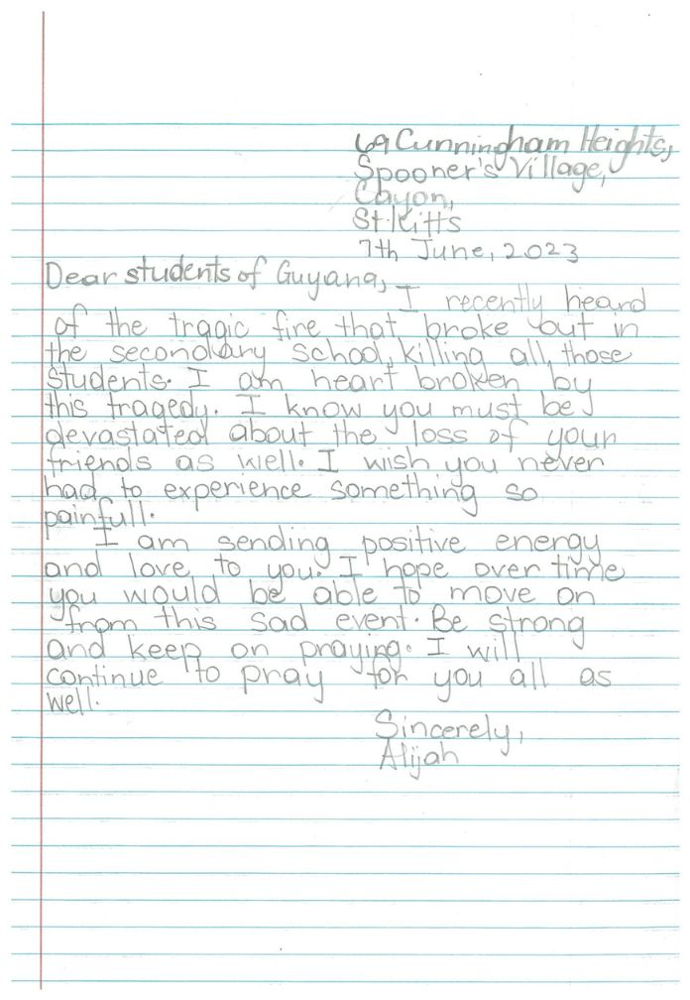 69 Cunningham Heights,
Spooner's Village,
Cayon,
St. Kitts
7th June, 2023
Dear students of Guyana,
I recently heard
of the tragic fire that broke out in
the secondary school, killing all those
students. I am heart broken by
this tragedy. I know you must be
devastated about the loss of your
friends as well. I wish you never
had to experience something so
painfull.
I am sending positive energy
and love to you. I hope over time
you would be able to move on
from this sad event. Be strong
and keep on praying. I will
continue to pray for you all as
well.
Sincerely,
Alijah